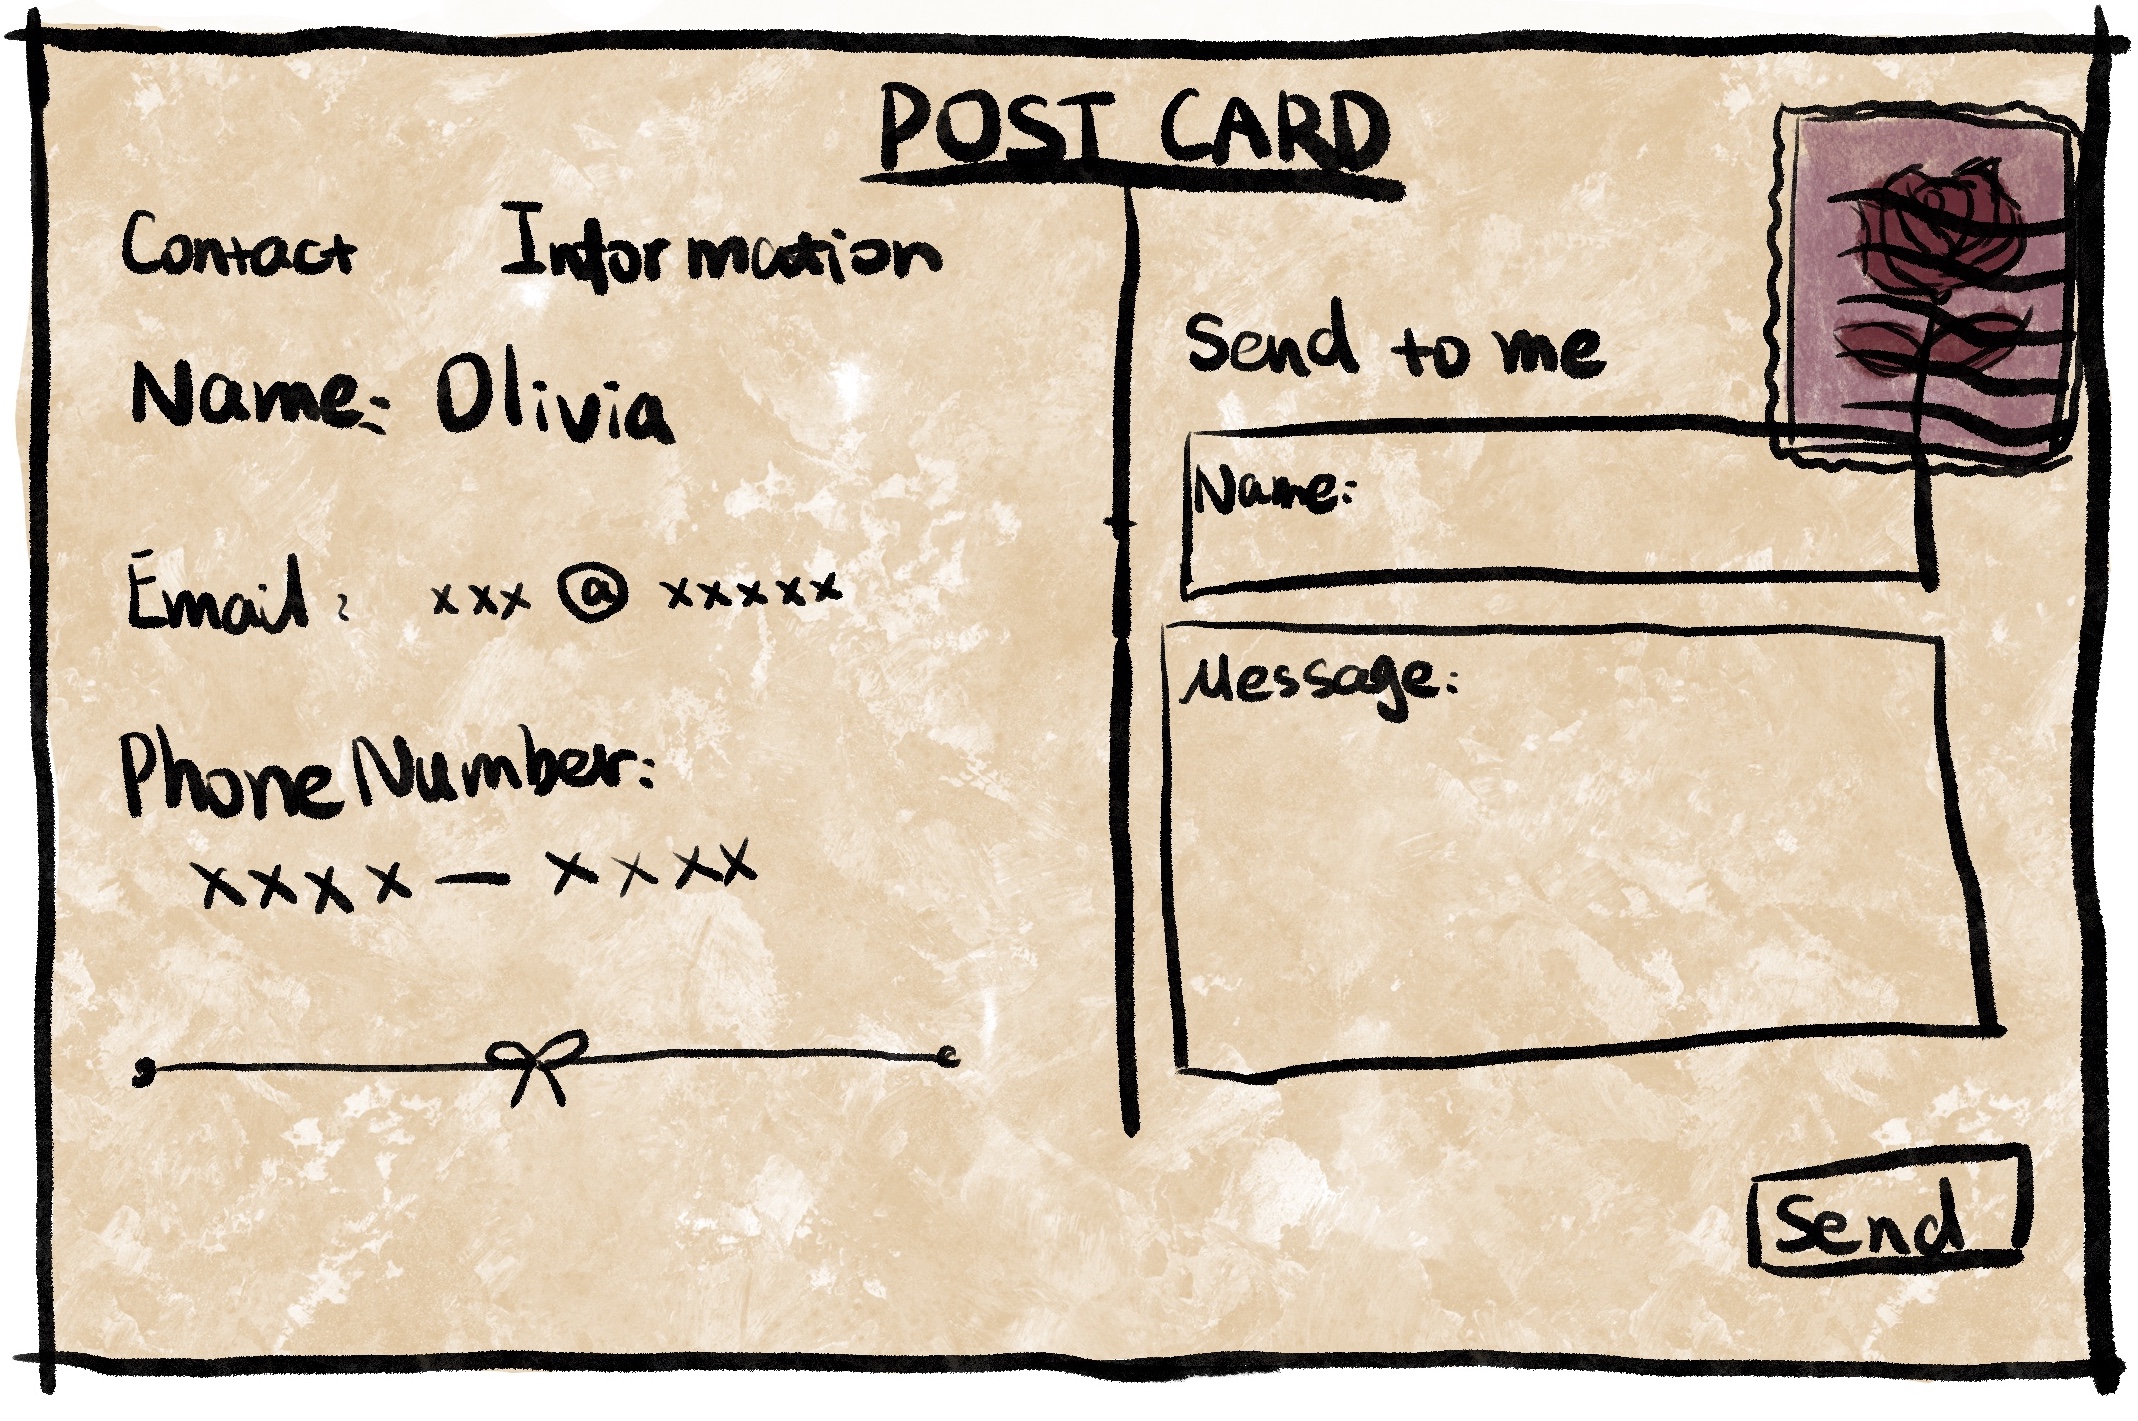 POST CARD
Contact Information
Name: Olivia
Email: xxx @ xxxxx
Phone Number:
xxxx — xxxx
Send to me
Name:
Message:
Send